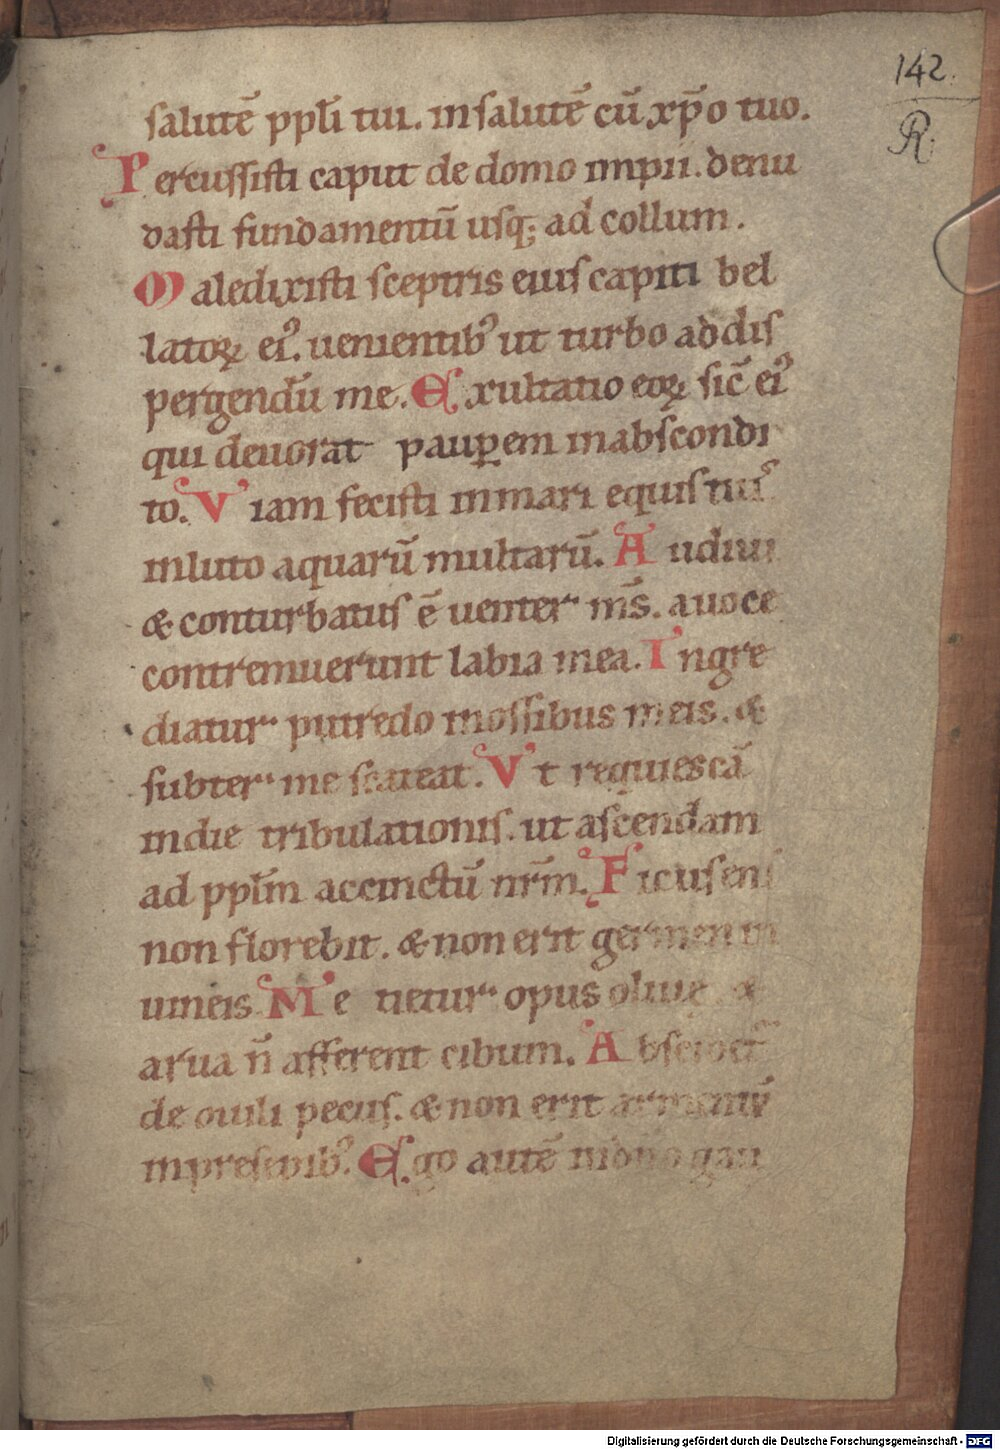 142.
R.
salutē ppl̄i tui. in salutē cū xp̄o tuo.
Percussisti caput de domo impii. denu
dasti fundamentū usq; ad collum.
Maledixisti sceptris eius capiti bel
latoꝝ eiꝰ. uenientibꝰ ut turbo ad dis
pergendū me. Exultatio eoꝝ sic̄ eiꝰ
qui deuorat pauꝑem in abscondi
to. Viam fecisti in mari equis tuis
in luto aquarū multarū. Audiui
& conturbatus ē uenter ms̄. a uoce
contremuerunt labia mea. Ingre
diatur putredo in ossibus meis. &
subter me scateat. Vt requiescā
in die tribulationis. ut ascendam
ad ppl̄m accinctū nr̄m. Ficus eni
non florebit. & non erit germen in
uineis. Metietur opus oliuę &
arua n̄ afferent cibum. Abscidet
de ouili pecus. & non erit armentū
in presepibꝰ. Ego autē in dno gau
Digitalisierung gefördert durch die Deutsche Forschungsgemeinschaft - DFG